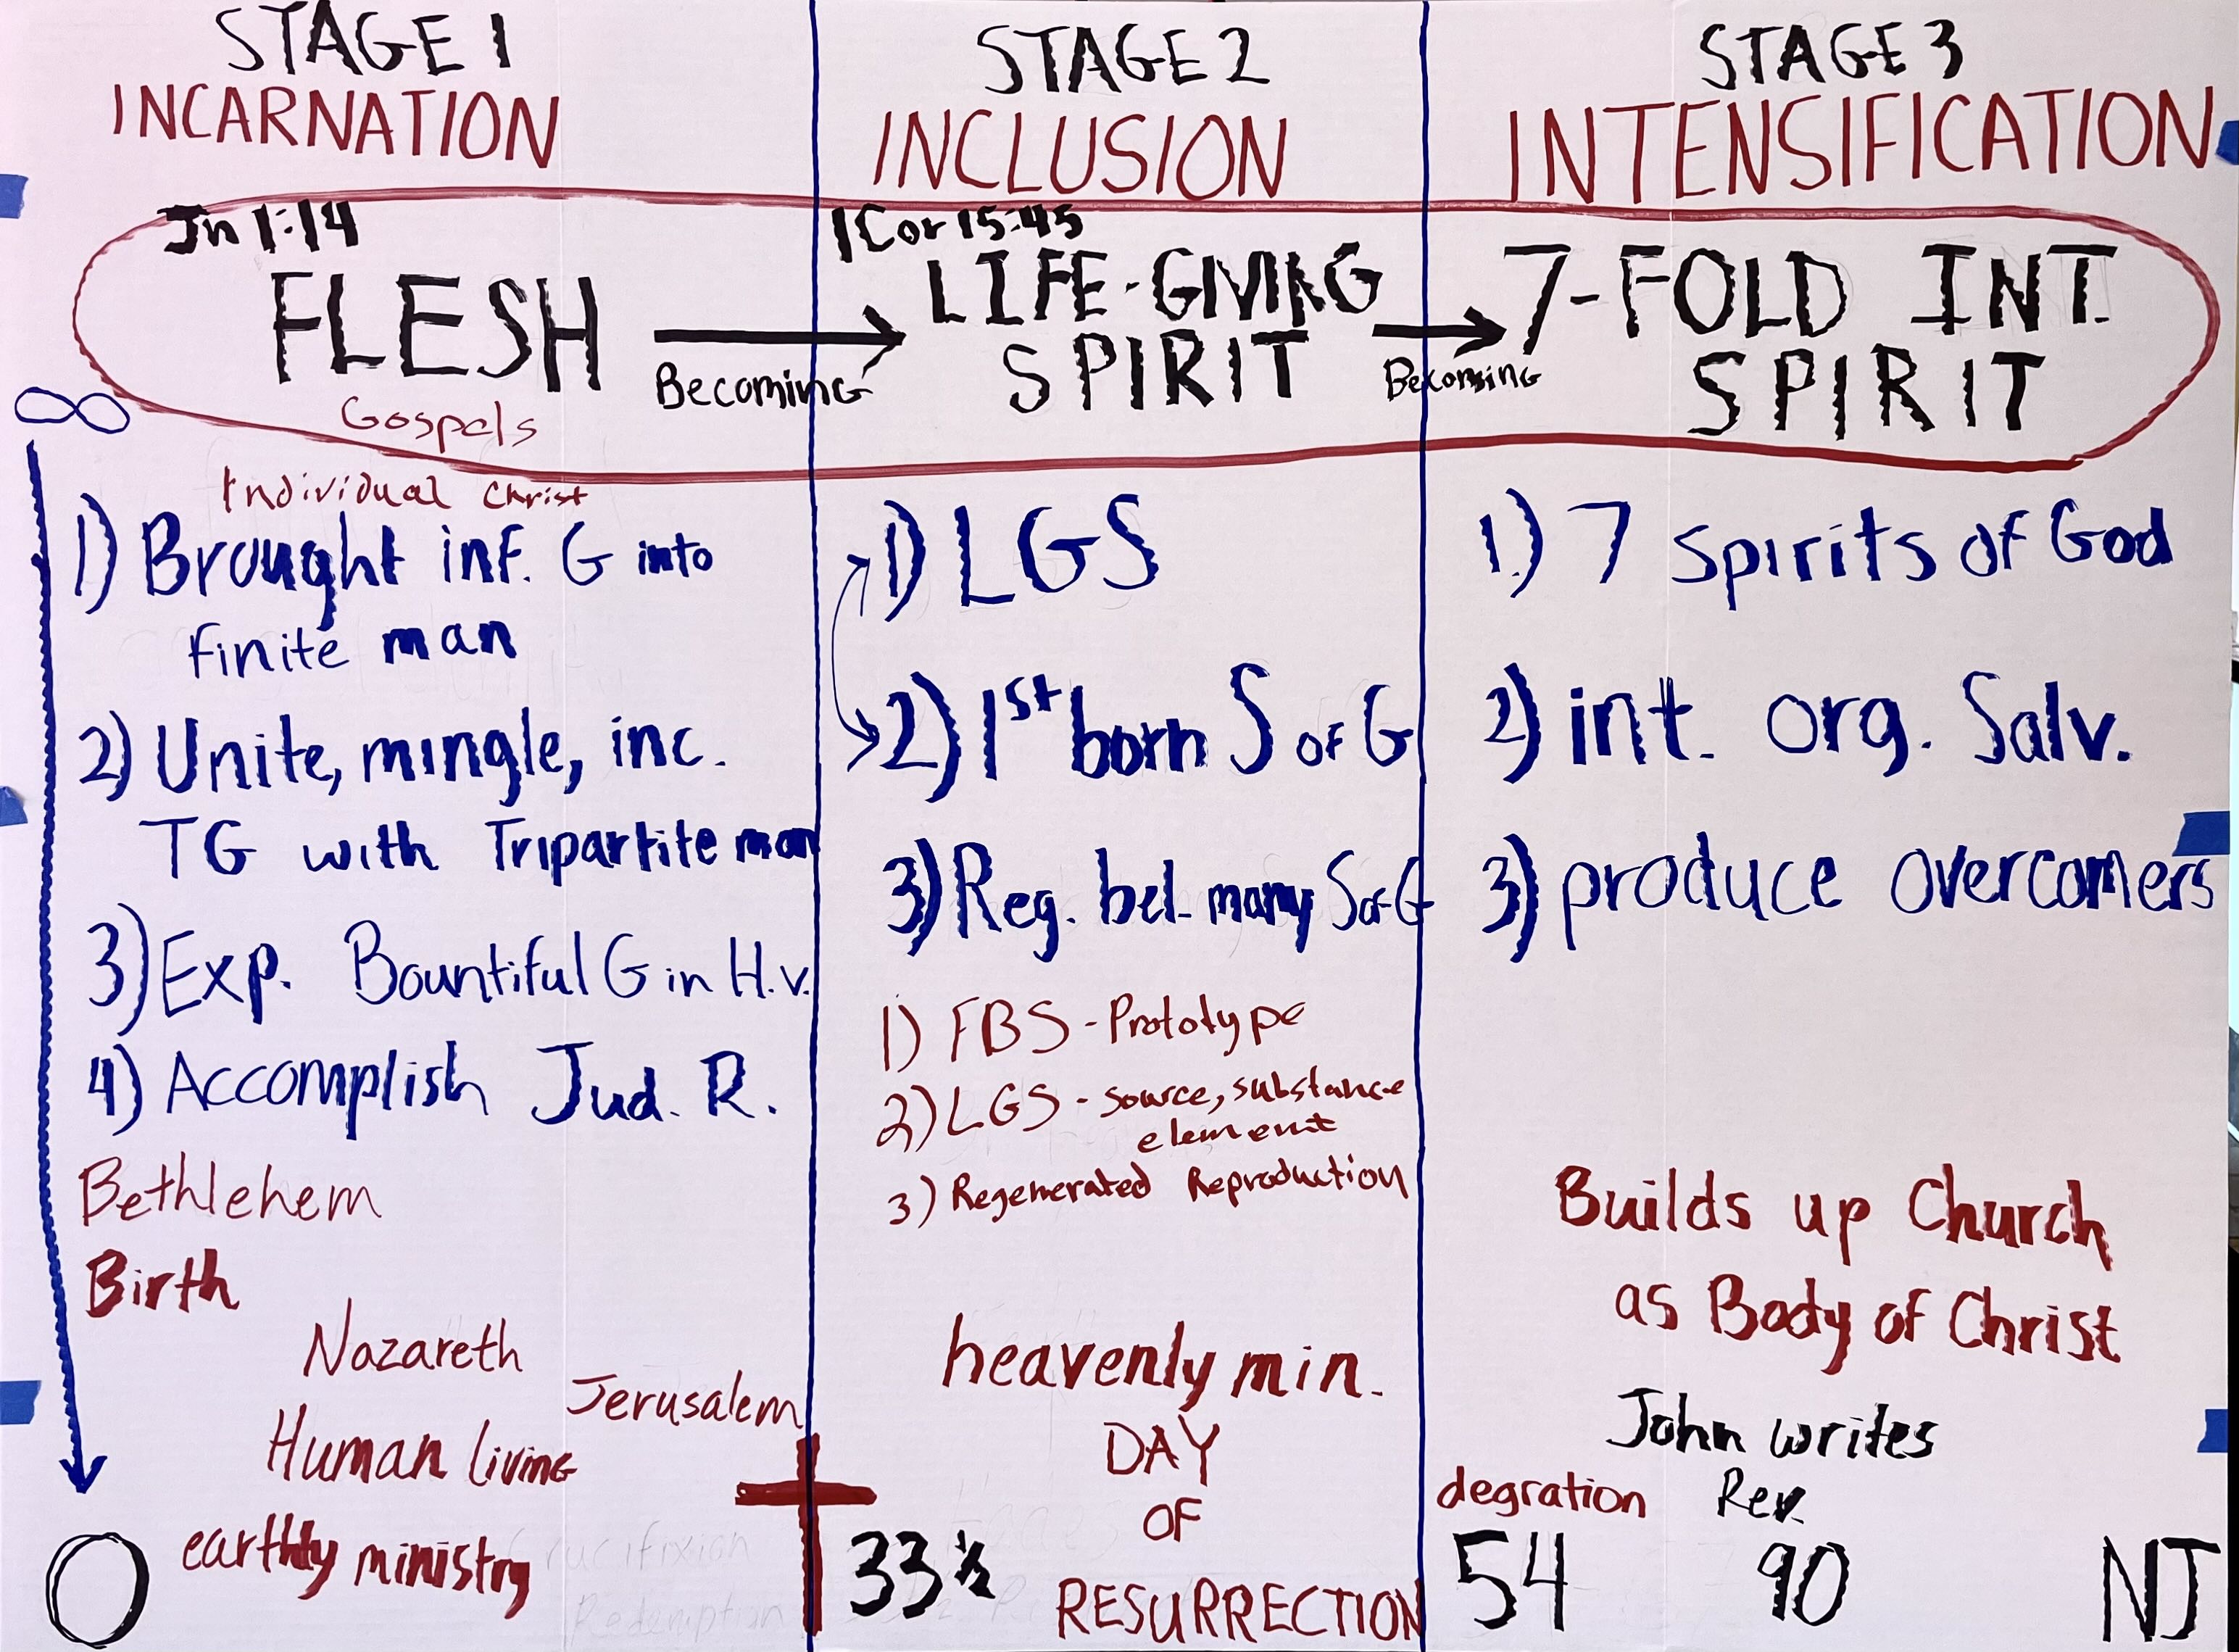 STAGE 1
INCARNATION
Jn 1:14
FLESH
Becoming
Gospels
∞
Individual Christ
1) Brought inf. G into
finite man
2) Unite, mingle, inc.
TG with Tripartite man
3) Exp. Bountiful G in H.v.
4) Accomplish Jud. R.
Bethlehem
Birth
Nazareth
Jerusalem
Human living
earthly ministry
Crucifixion
Redemption
0
STAGE 2
INCLUSION
1 Cor 15:45
LIFE-GIVING
SPIRIT
Becoming
1) LGS
2) 1st born S of G
3) Reg. bel. many S of G
1) FBS - Prototype
2) LGS - source, substance
element
3) Regenerated Reproduction
heavenly min.
DAY
OF
RESURRECTION
33 ½
STAGE 3
INTENSIFICATION
7-FOLD INT.
SPIRIT
1.) 7 spirits of God
2) int. org. Salv.
3) produce overcomers
Builds up Church
as Body of Christ
John writes
Rev.
degration
54
90
NJ